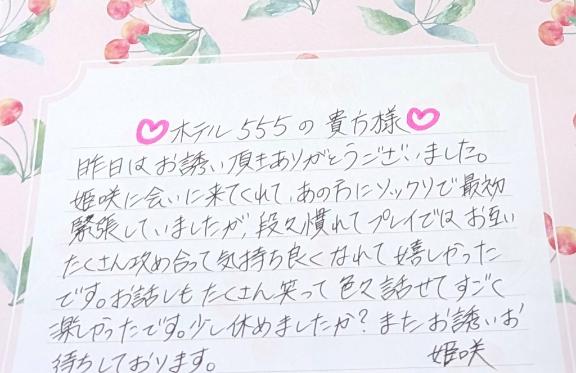 ♡ホテル555の貴方様♡
昨日はお誘い頂きありがとうございました。
姫咲に会いに来てくれて、あの方にソックリで最初
緊張していましたが、段々慣れてプレイではお互い
たくさん攻め合って気持ち良くなれて嬉しかった
です。お話しもたくさん笑って色々話せてすごく
楽しかったです。少し休めましたか?またお誘いお
待ちしております。 姫咲